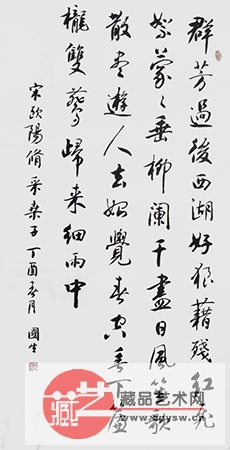 群芳過後西湖好狼藉殘紅飛
絮蒙々垂柳闌干盡日風笙歌
散尽遊人去始覺春空垂下簾
櫳雙燕歸來細雨中
宋歐陽脩采桑子丁酉春月 國生
藏品艺术网